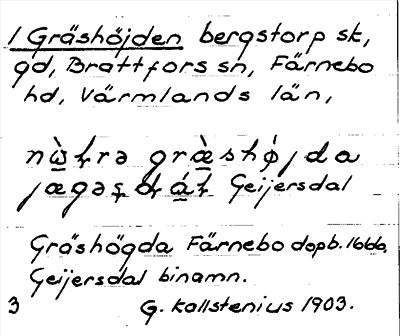 1 Gräshöjden bergstorp sk,
gd, Brattfors sn, Färnebo
hd, Värmlands län,
nὼt̨rə græ̀shø̣jda
jægəş dt̨ Geijersdal
Gräshögda Färnebo dopb. 1660,
Geijersdal binamn.
3 G. Kallstenius 1903.